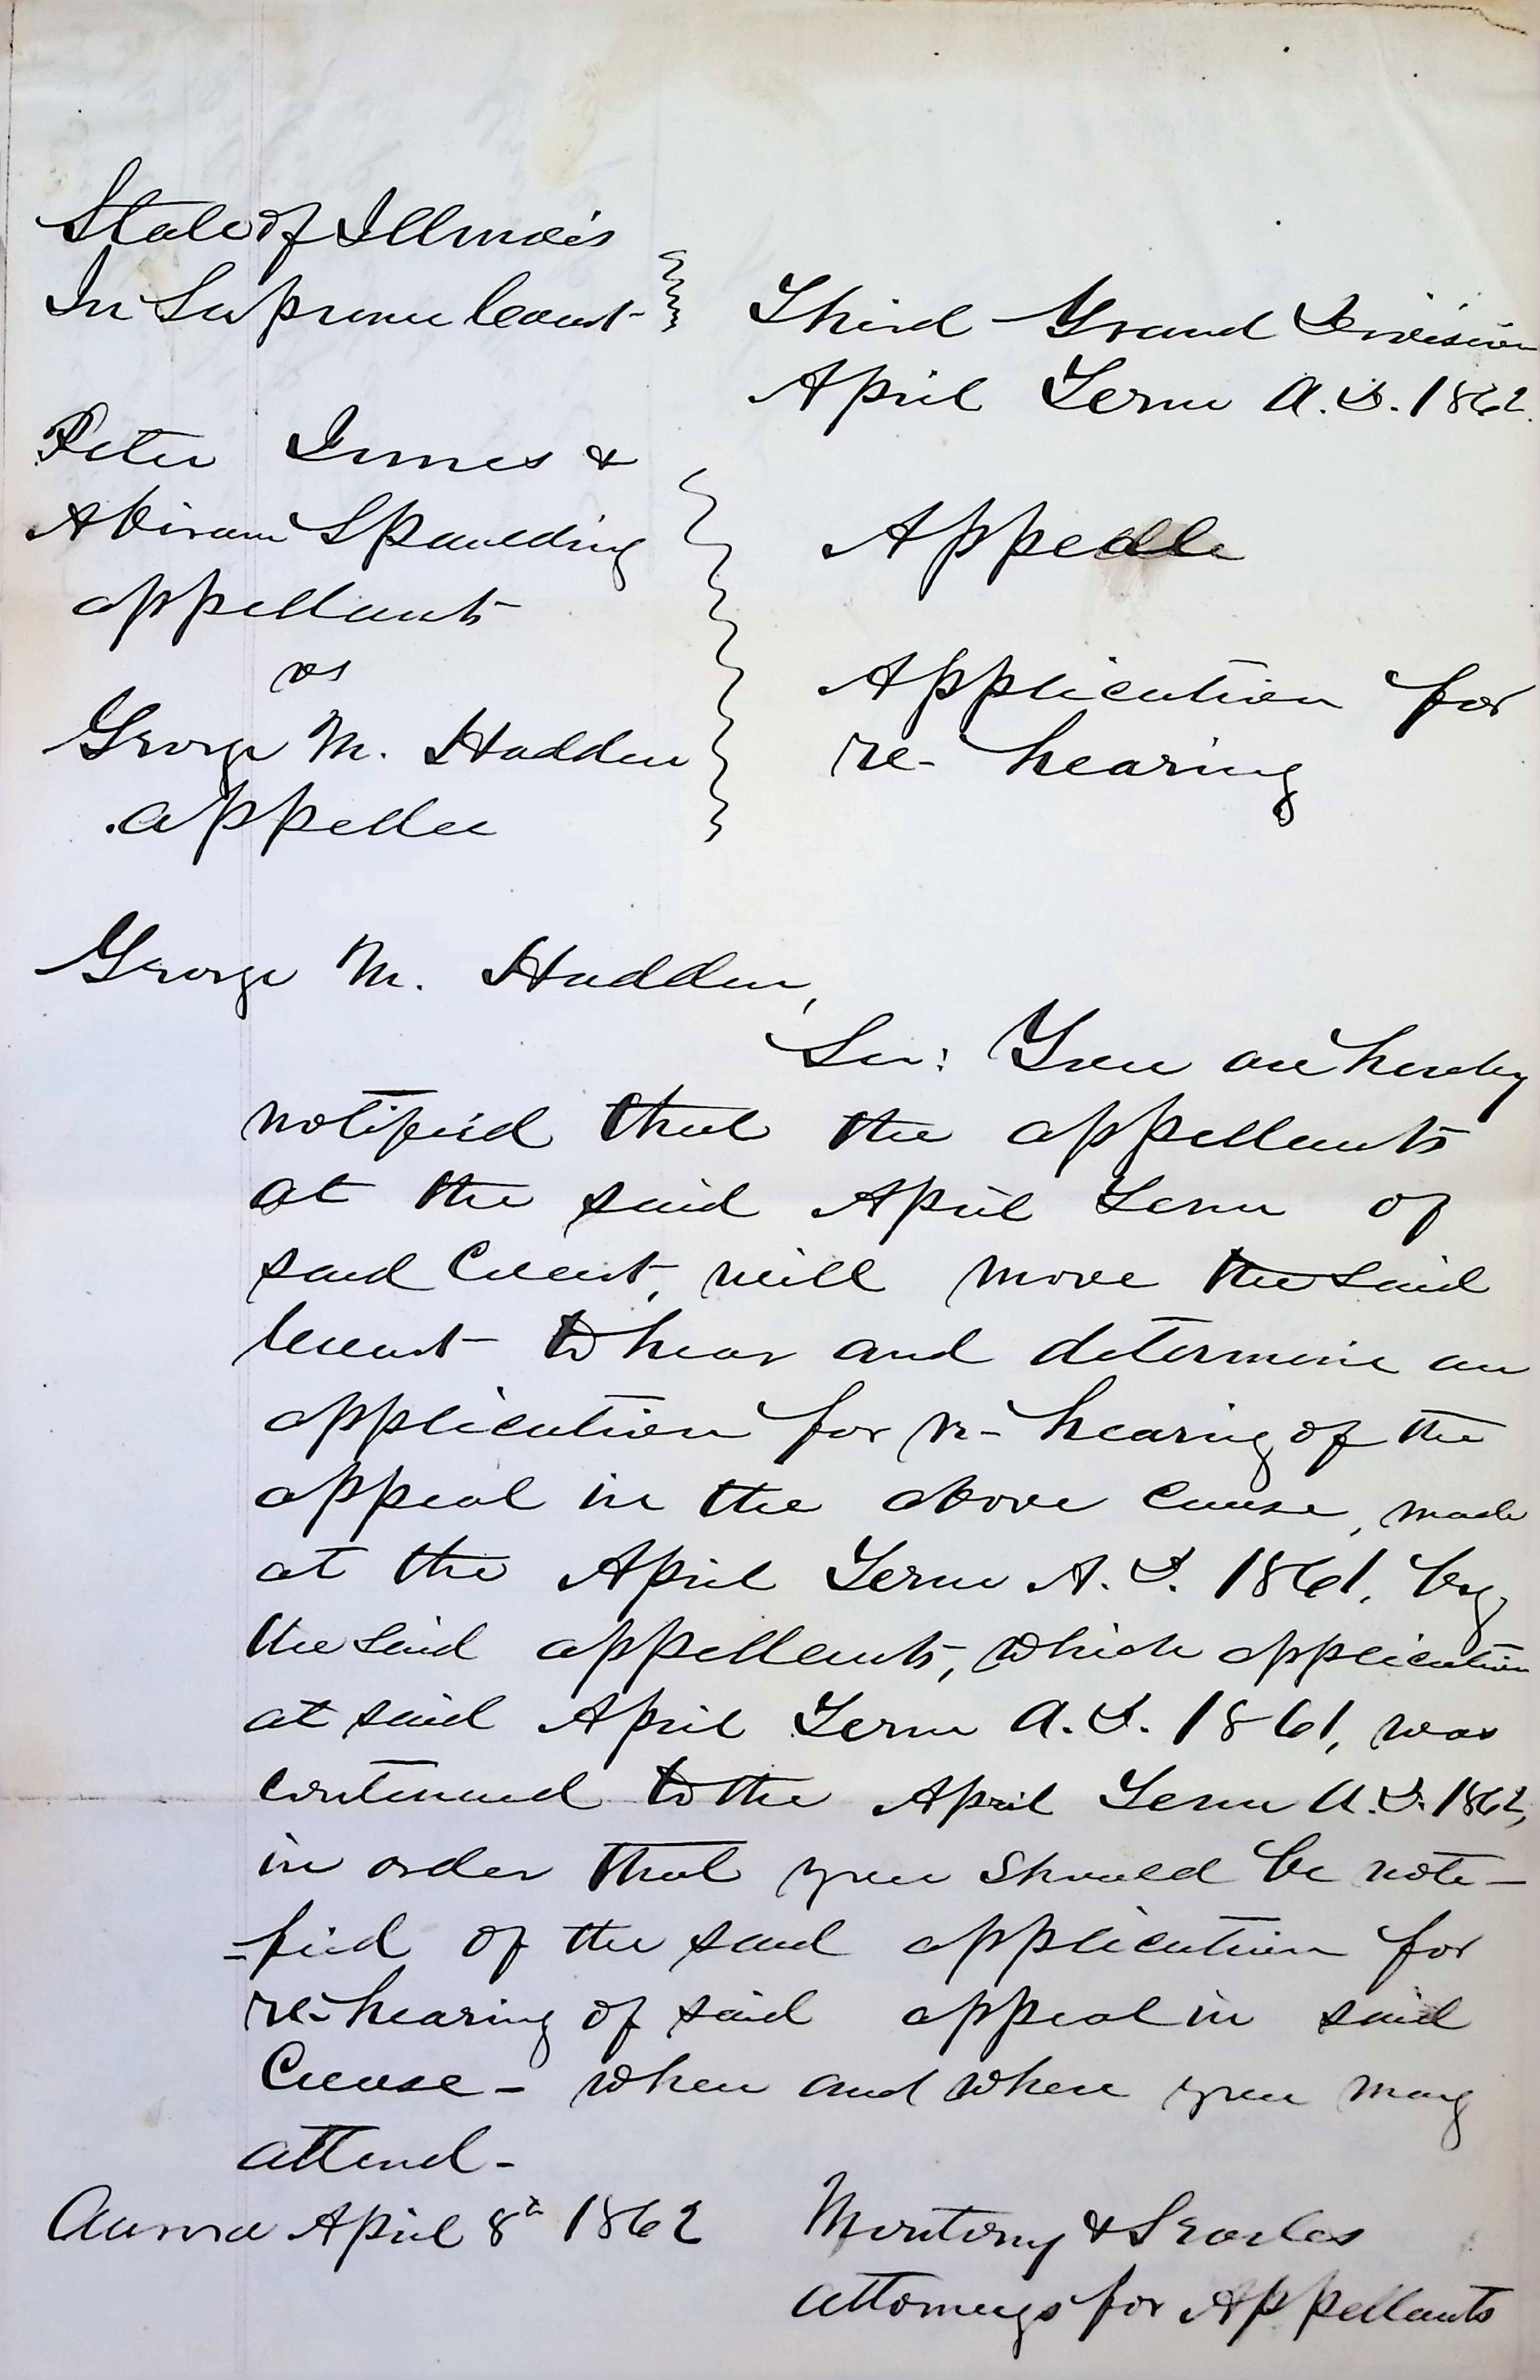 State of Illinois
In Supreme Court
Third Grand Division
April Term A.D. 1862.
Peter Innes &
Abiram Spaulding
appellants
vs
George M. Hadden
appellee
Appeal
Application for
re-hearing
George M. Hadden,
Sir: You are hereby
notified that the appellants
at the said April Term of
said Court, will move the said
Court to hear and determine an
application for re-hearing of the
appeal in the above cause, made
at the April Term A.D. 1861, by
the said appellants, which application
at said April Term A.D. 1861, was
continued to the April Term A.D. 1862,
in order that you should be noti-
=fied of the said application for
re-hearing of said appeal in said
Cause - when and where you may
attend -
Aurora April 8th 1862
Montony & Searles
attorneys for Appellants